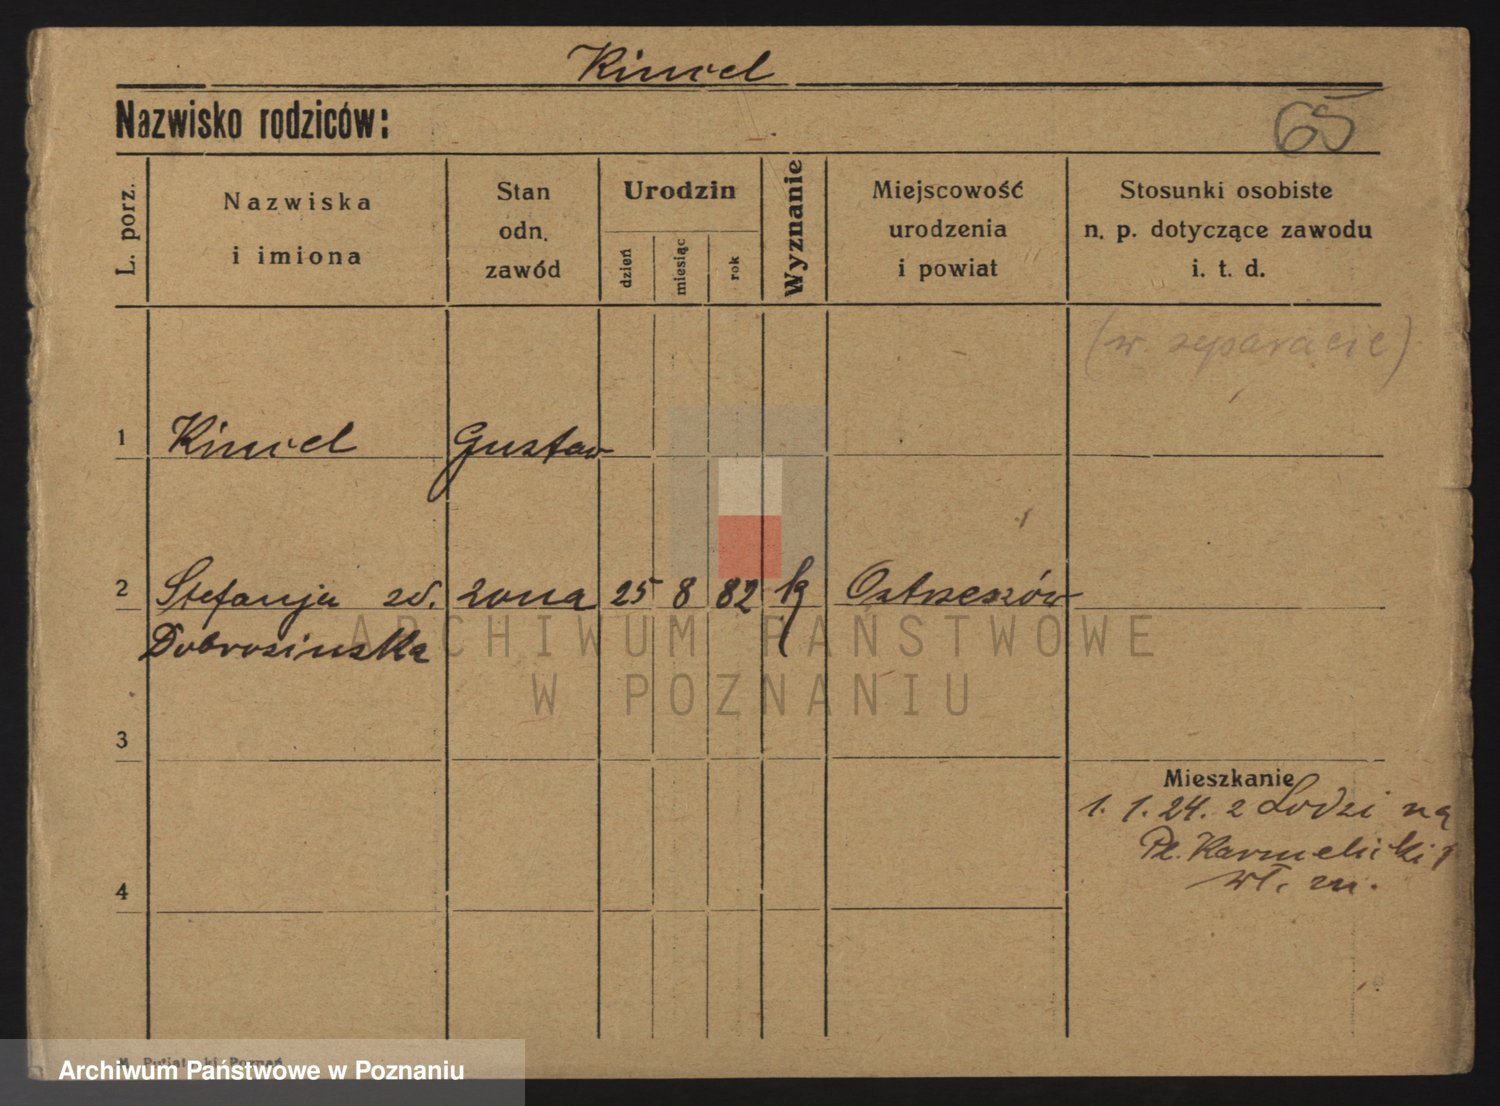 Kimel
Nazwisko rodziców:
65
L. porz.
Nazwiska
i imiona
Stan
odn.
zawód
Urodzin
dzień
miesiąc
rok
Wyznanie
Miejscowość
urodzenia
i powiat
Stosunki osobiste
n. p. dotyczące zawodu
i. t. d.
(w separacie)
1 Kimel Gustaw
2 Stefanja zd. żona 25 8 82 k Ostrzeszów
Dobrosinska
ARCHIWUM PAŃSTWOWE
W POZNANIU
3
Mieszkanie
1. 1.24. z Łodzi na
Pl. Karmelicki 1
wł. m.
4
Archiwum Państwowe w Poznaniu